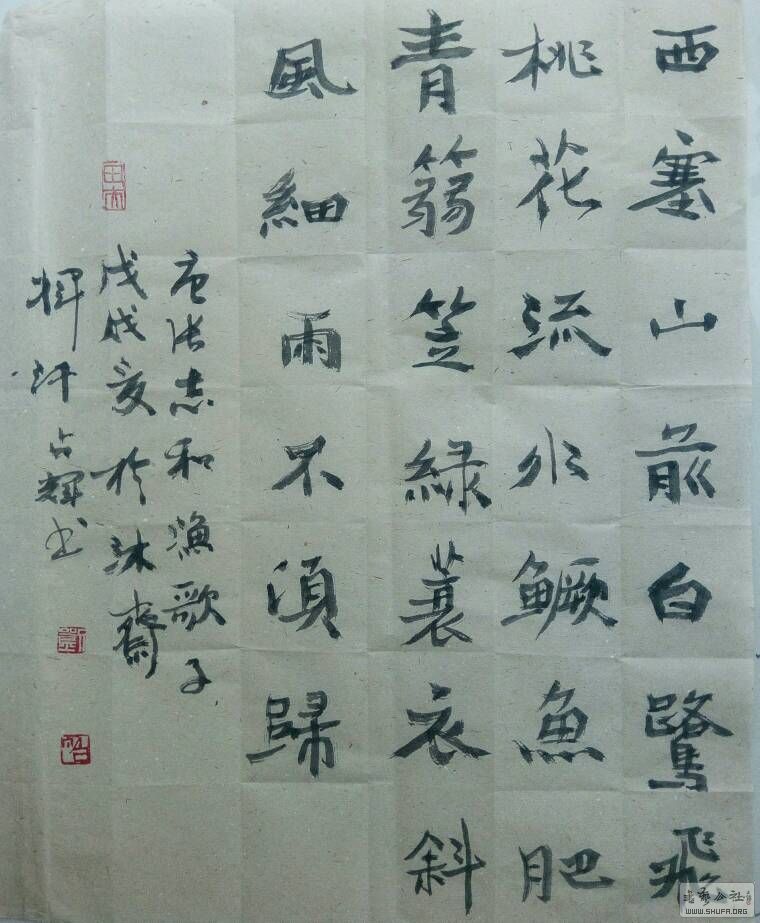 西塞山前白鷺飛
桃花流水鳜魚肥
青篛笠緑蓑衣斜
風細雨不須歸
唐張志和漁歌子
戊戌夏於沐齋
揮汗占輝書
WWW.SHUFA.ORG